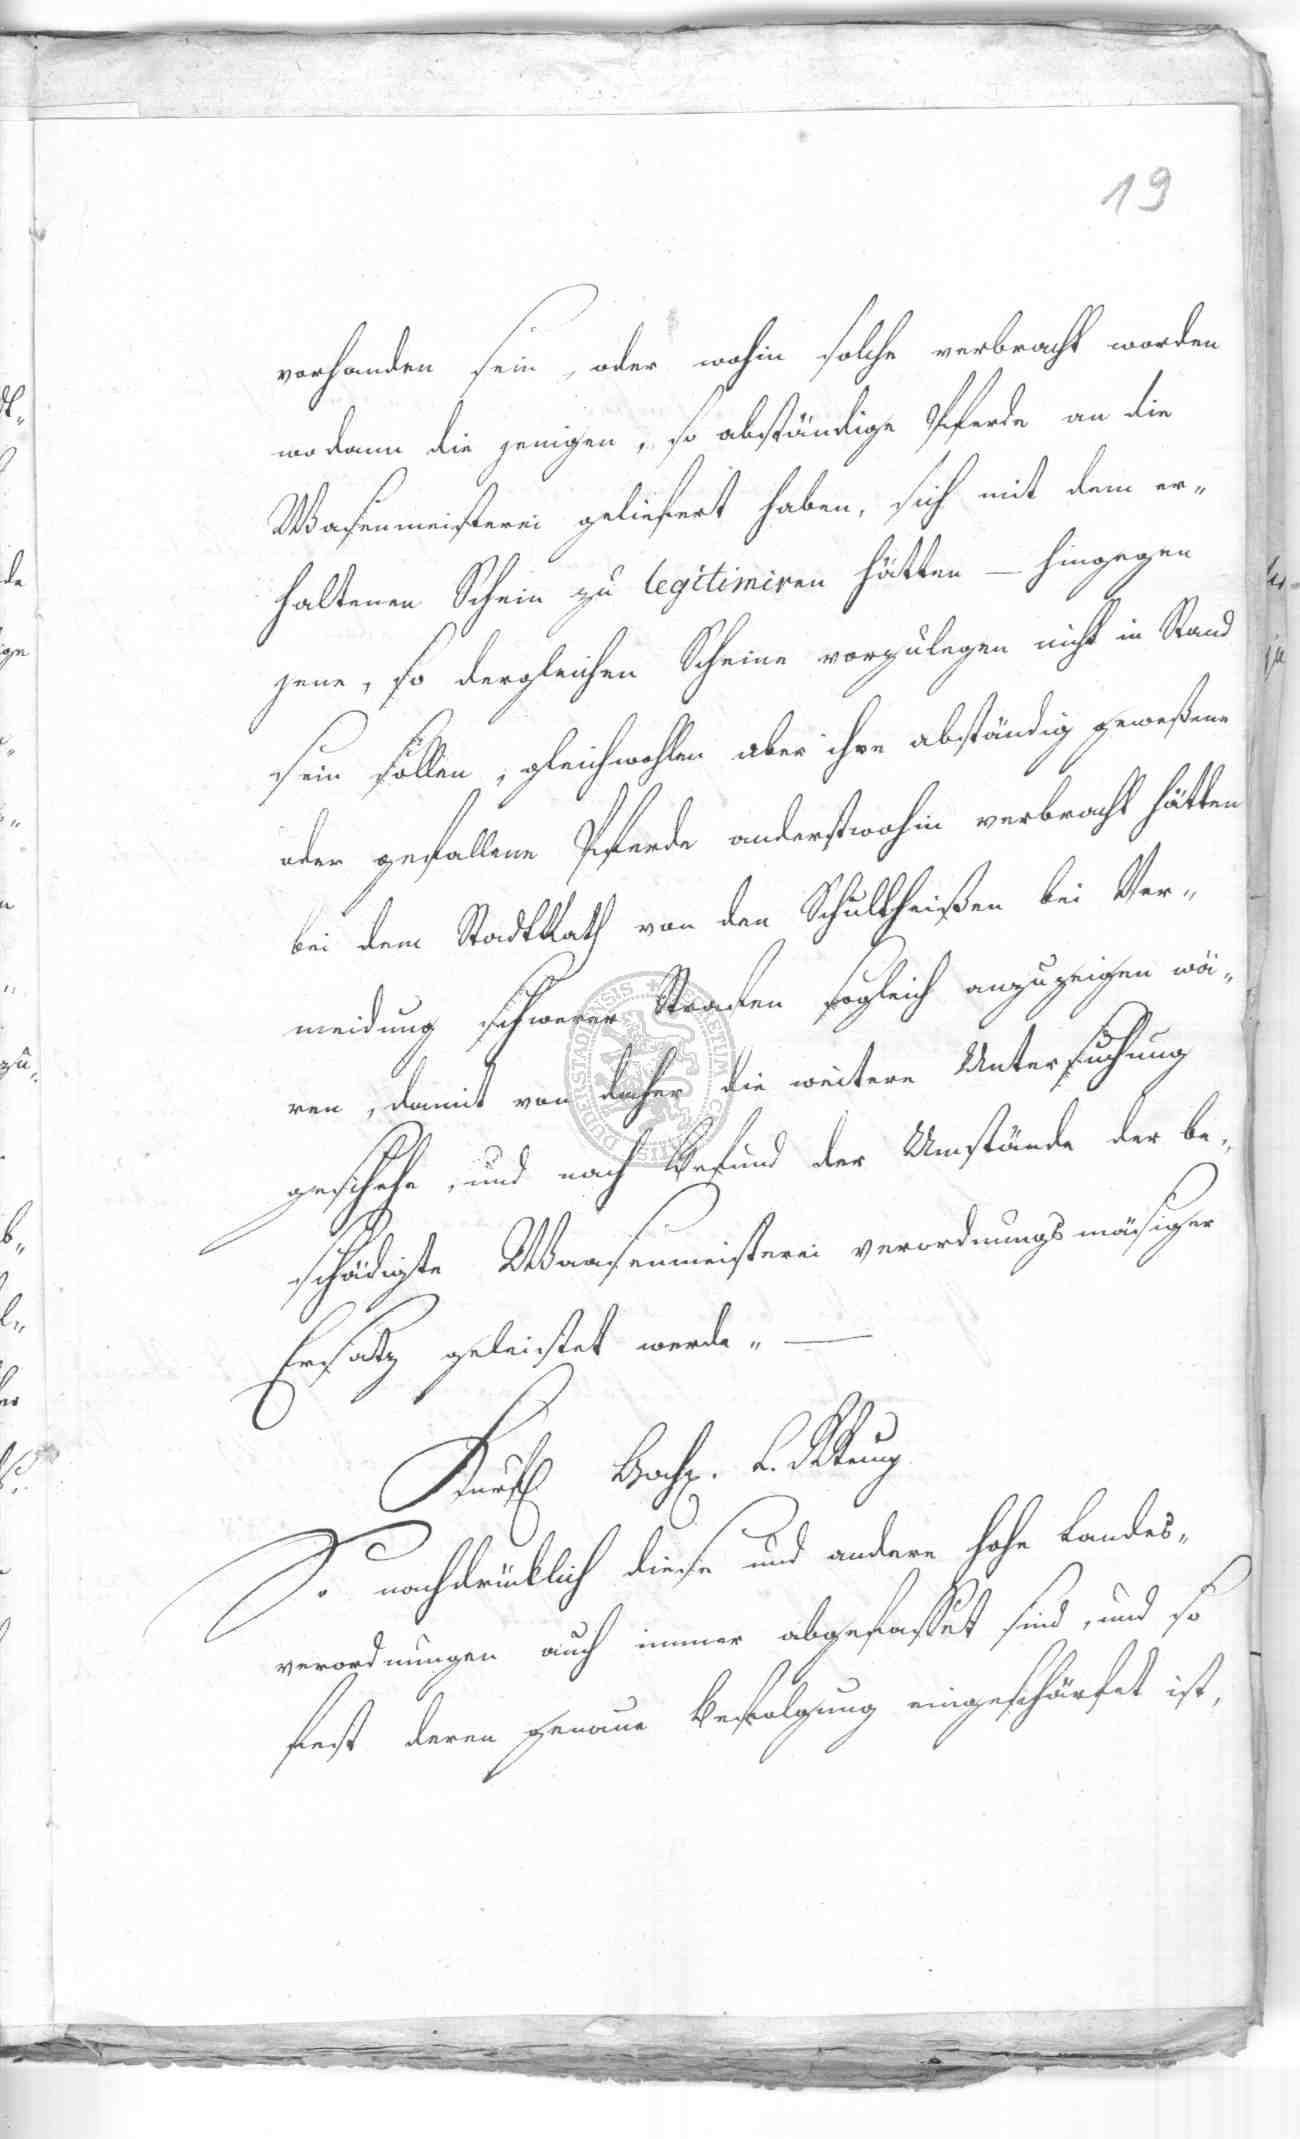 19
vorhanden sein, oder wohin solche verbracht worden
wo dann die jenigen, so abständige Pferde an die
Wasenmeisterei geliefert haben, sich mit dem er„
haltenen Schein zu legitimiren hätten — hingegen
jene, so dergleichen Scheine vorzulegen nicht in Stand
sein sollen, gleichwohlen aber ihre abständig geweßene
oder gefallene Pferde anderstwohin verbracht hätten
bei dem StadtRath von den Schultheißen bei Ver„
meidung schwerer Strafen sogleich anzuzeigen wä„
ren, damit von daher die weitere Untersuchung
geschehe, und nach Befund der Umstände der be„
schädigte Waasenmeisterei verordnungsmäsiger
Ersatz geleistet werde„ —
So nachdrücklich diese und andere hohe Landes„
verordnungen auch immer abgefasset sind, und so
fest deren genaue Befolgung eingeschärfet ist,